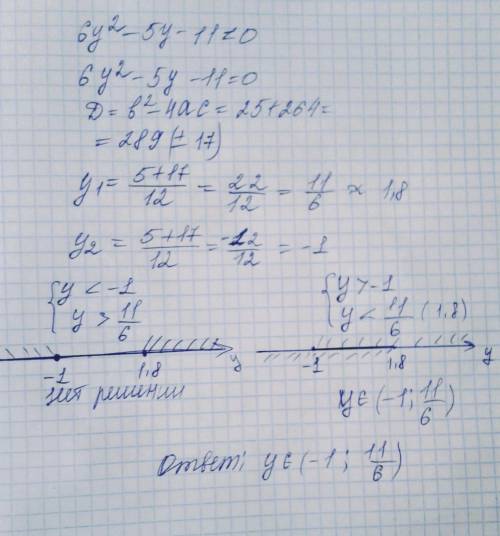 6y² - 5y - 11 < 0
6y² - 5y - 11 = 0
D = b² - 4ac = 25 + 264 =
= 289 (± 17)
y₁ = (5+17)/12 = 22/12 = 11/6 ≈ 1,8
y₂ = (5+17)/12 = -12/12 = -1
{ y < -1
y > 11/6
-1 1,8 y
нет решении
{ y > -1
y < 11/6 (1,8)
-1 1,8 y
y ∈ (-1; 11/6)
Ответ: y ∈ (-1; 11/6)